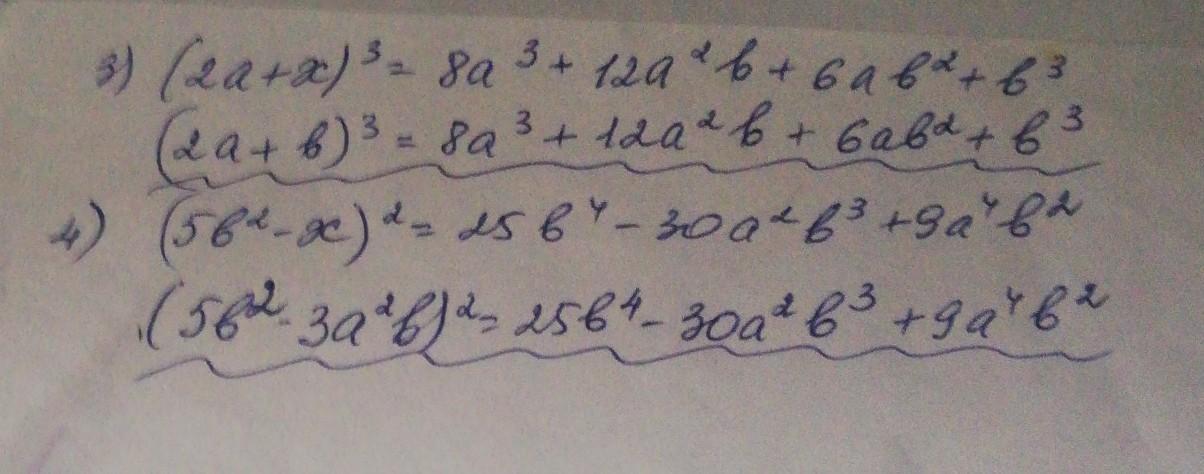 3) (2a+x)³ = 8a³ + 12a²b + 6ab² + b³
(2a + b)³ = 8a³ + 12a²b + 6ab² + b³
4) (5b² - x)² = 25b⁴ - 30a²b³ + 9a⁴b²
(5b² - 3a²b)² = 25b⁴ - 30a²b³ + 9a⁴b²